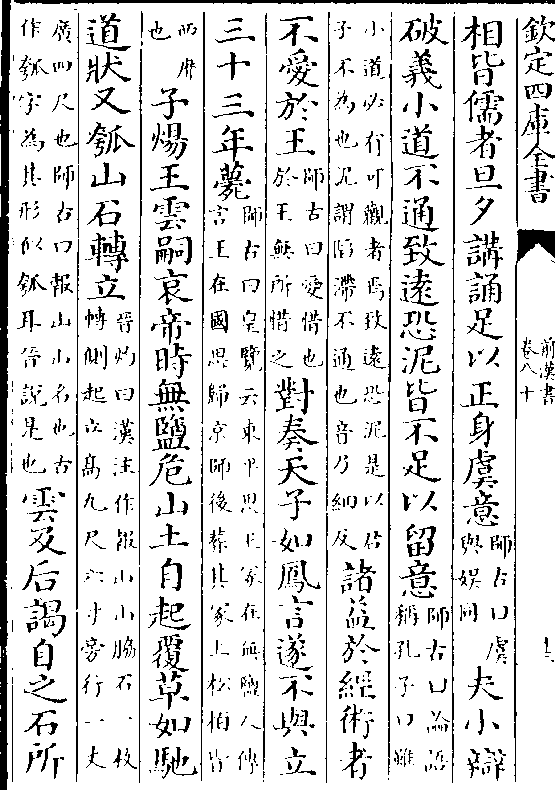 欽定四庫全書
前漢書
卷八十
相皆儒者旦夕講誦足以正身虞意師古曰虞與娛同夫小辯
破義小道不通致遠恐泥皆不足以留意師古曰論語稱孔子曰雖
小道必有可觀者焉致遠恐泥是以君子不為也泥謂陷滯不通也音乃細反諸益於經術者
不愛於王師古曰愛惜也於王無所惜之對奏天子如鳳言遂不與立
三十三年薨師古曰皇覽云東平思王冢在無鹽人傳言王在國思歸京師後葬其冢上松柏皆
西靡也子煬王雲嗣哀帝時無鹽危山土自起覆草如馳
道狀又瓠山石轉立晉灼曰漢注作報山山脇石一枚轉側起立高九尺六寸旁行一丈
廣四尺也師古曰報山山名也古作瓠字為其形似瓠耳晉說是也雲及后謁自之石所